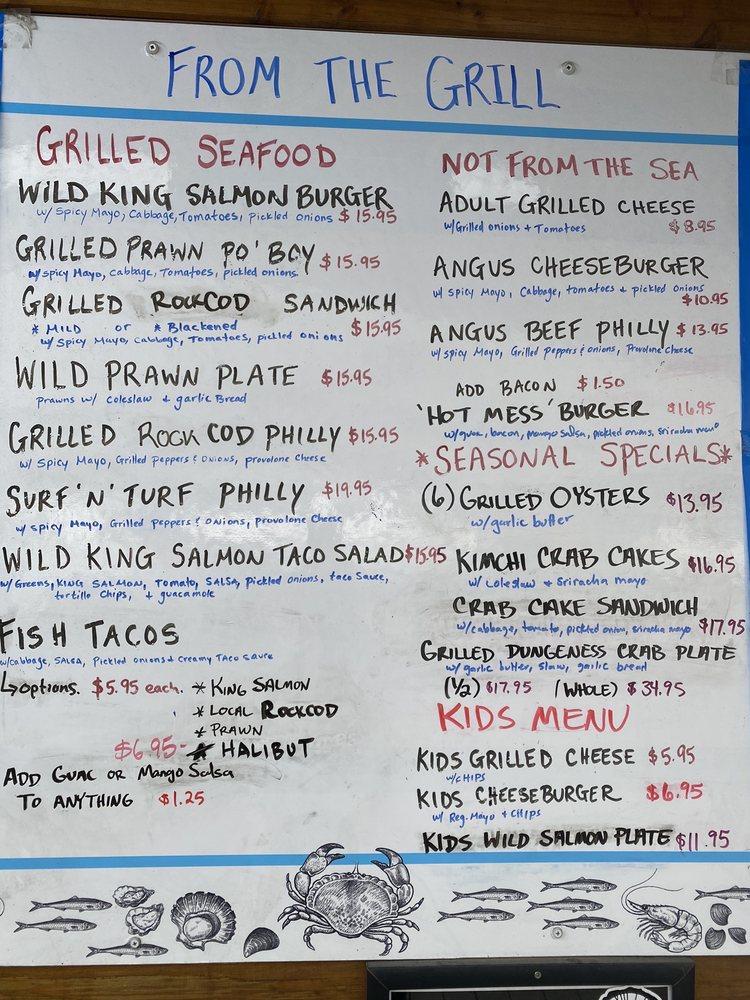 FROM THE GRILL
GRILLED SEAFOOD
WILD KING SALMON BURGER
w/ Spicy Mayo, Cabbage, Tomatoes, Pickled onions $15.95
GRILLED PRAWN PO' BOY $15.95
w/ spicy Mayo, cabbage, Tomatoes, pickled onions
GRILLED ROCKCOD SANDWICH
* MILD or * Blackened $15.95
w/ Spicy Mayo, cabbage, Tomatoes, pickled onions
WILD PRAWN PLATE $15.95
Prawns w/ coleslaw & garlic Bread
GRILLED ROCK COD PHILLY $15.95
w/ Spicy Mayo, Grilled Peppers & Onions, provolone cheese
SURF 'N' TURF PHILLY $19.95
w/ spicy Mayo, Grilled Peppers & Onions, Provolone Cheese
WILD KING SALMON TACO SALAD $15.95
w/ Greens, KING SALMON, Tomato, SALSA, Pickled onions, taco sauce,
tortilla Chips, & guacamole
FISH TACOS
w/cabbage, SALSA, Pickled onions & Creamy TACO sauce
↳options. $5.95 each. * KING SALMON
* LOCAL ROCKCOD
* PRAWN
$6.95 - * HALIBUT
ADD GUAC OR Mango Salsa
TO ANYTHING $1.25
NOT FROM THE SEA
ADULT GRILLED CHEESE
w/Grilled onions + Tomatoes $8.95
ANGUS CHEESEBURGER
w/ spicy Mayo, Cabbage, tomatoes & pickled onions
$10.95
ANGUS BEEF PHILLY $13.95
w/ spicy Mayo, Grilled Peppers & onions, Provolone Cheese
ADD BACON $1.50
'HOT MESS' BURGER $16.95
w/guac, bacon, mango salsa, pickled onions, sriracha mayo
*SEASONAL SPECIALS*
(6) GRILLED OYSTERS $13.95
w/garlic butter
KIMCHI CRAB CAKES $16.95
w/ Coleslaw & Sriracha mayo
CRAB CAKE SANDWICH
w/cabbage, tomato, pickled onion, sriracha mayo $17.95
GRILLED DUNGENESS CRAB PLATE
w/ garlic butter, slaw, garlic bread
(1/2) $17.95 (WHOLE) $34.95
KIDS MENU
KIDS GRILLED CHEESE $5.95
w/CHIPS
KIDS CHEESEBURGER $6.95
w/ Reg. Mayo & CHIPS
KIDS WILD SALMON PLATE $11.95